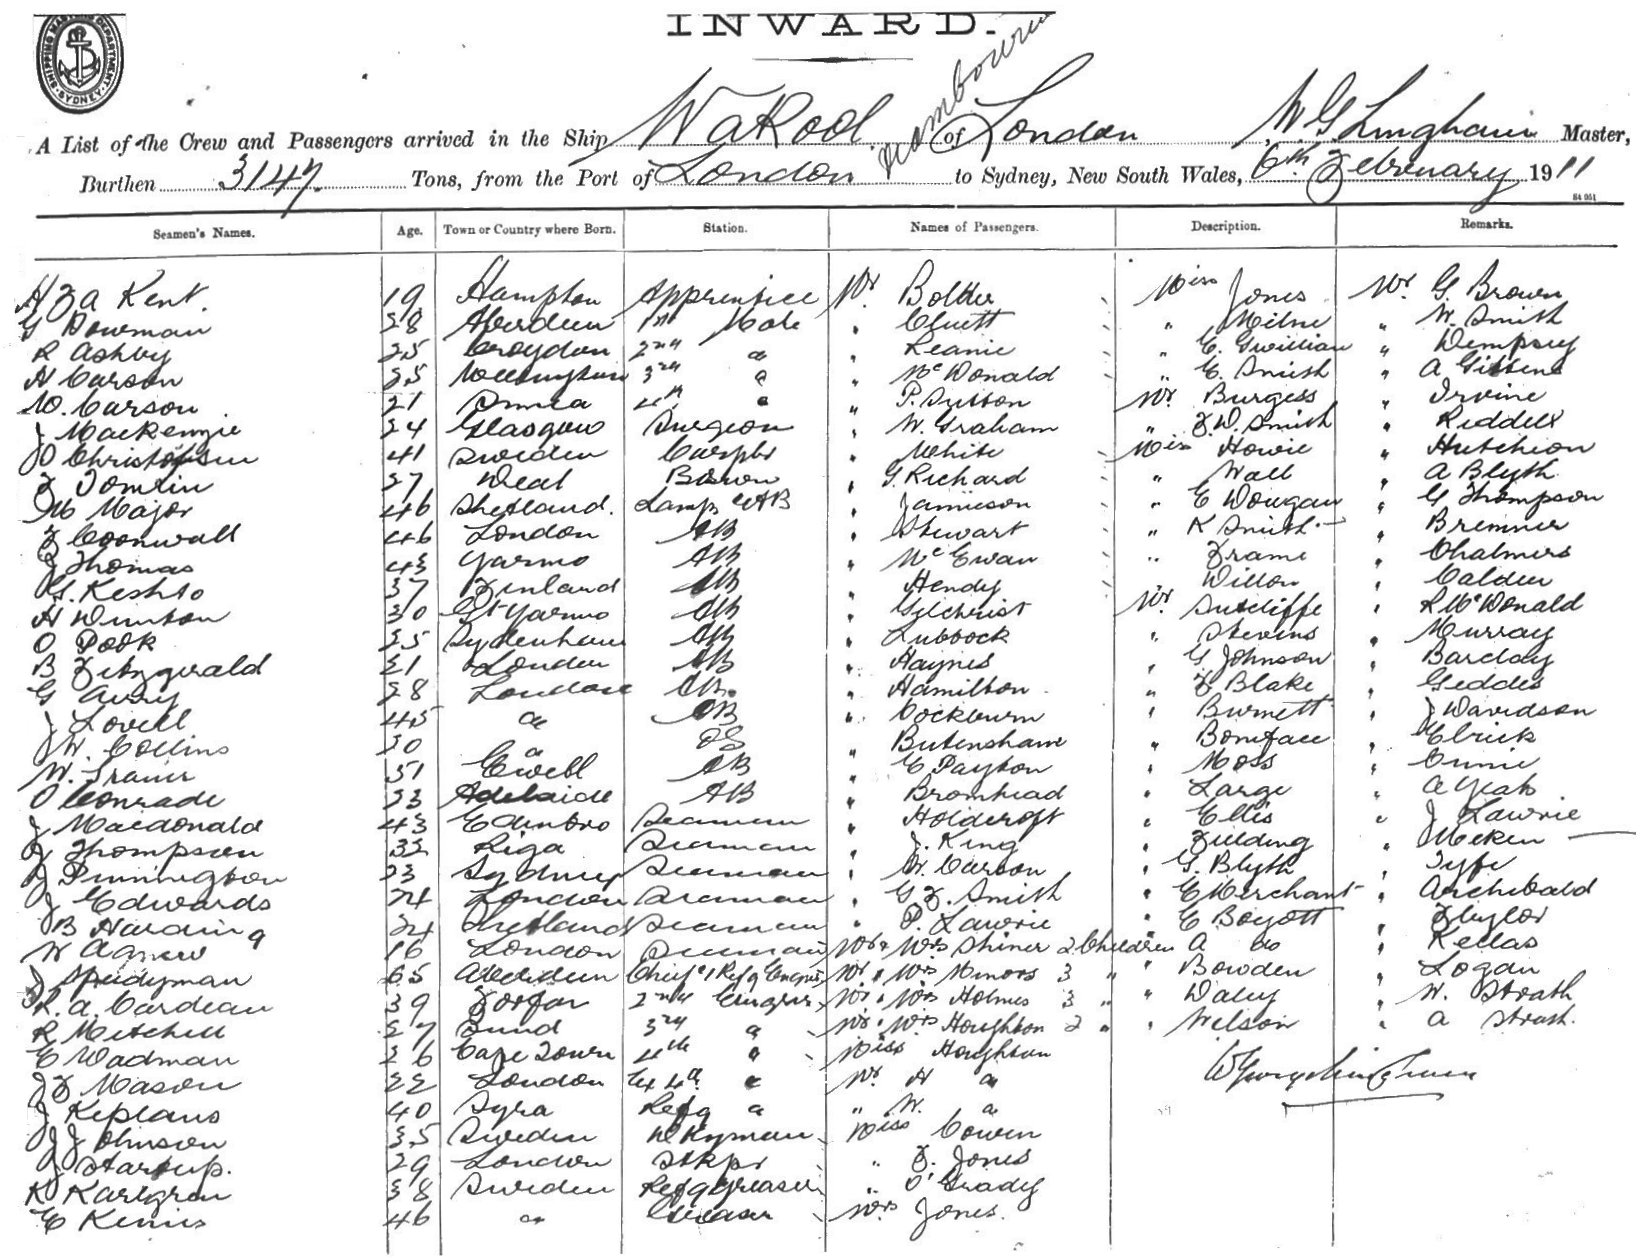 SHIPPING MASTER'S DEPARTMENT SYDNEY
INWARD.
A List of the Crew and Passengers arrived in the Ship Wakool of London W G Lingham Master,
Burthen 3147 Tons, from the Port of London to Sydney, New South Wales, 6th February 1911
Seamen's Names. Age. Town or Country where Born. Station. Names of Passengers. Description. Remarks.
H F A Kent. 19 Hampton Apprentice Mr Miss Jones Mr. G. Brown
G Bowman 28 Aberdeen 1st Mate " Cluett " Milne " W. Smith
R Ashby 25 Croydon 2nd " " " E. Gwillian " Dempsey
H Carson 25 3rd " " McDonald " E. Smith " A
W. Carson 21 4th " " P. Sutton Mr. Burgess " Irvine
J Mackenzie 24 Glasgow Surgeon " W. Graham " F. W. Smith " Riddell
41 Sweden " White Miss Howie " Hutcheon
F Tomlin 27 Deal " G. Richard " Wall " A Blyth
M Major 46 Shetland. Lamps & AB " Jamieson " E Dougan " G Thompson
F Cornwall 46 London AB " Stewart " K Smith " Bremner
J Thomas 43 Yarmo AB " McEwan " Frame " Chalmers
G. 37 Finland AB " Hendy " " Calder
H 30 Gt Yarmo AB " Gilchrist Mr. Sutcliffe " R McDonald
O Pook 25 Sydenham AB " Lubbock " Stevens " Murray
B Fitzgerald 21 London AB " Haynes " G Johnson " Barclay
G Avey 28 London AB " Hamilton " F Blake " Geddes
J Lovell 45 " AB " Cockburn " Burnett " J Davidson
W. Collins 20 " OS " " Boniface "
W. 51 Ewell AB " E Payton " Moss "
O Conrade 23 Adelaide AB " Bromhead " Large " A
J Macdonald 43 Edinbro Seaman " Holdcroft " Ellis " J Lawrie
J Thompson 32 Riga Seaman " J. King " Fielding "
J Pennington 23 Sydney Seaman " W. Carson " G. Blyth " Fyfe
J Edwards 24 London Seaman " G F. Smith " E Merchant " Archibald
B Harding 24 Shetland Seaman " P. Lawrie " E Boyott "
W Agnew 16 London Seaman Mr & Mrs Shiner 2 Children " A do " Kellas
J Speidyman 65 Aberdeen Chief & Refg Engnr Mr " Mrs Minors 3 " " Bowden " Logan
R. A. Cardeau 39 Forfar 2nd Engnr Mr " Mrs Holmes 3 " " Daley " W. Strath
R Mitchell 27 3rd " Mr " Mrs Houghton 2 " " Wilson " A Strath.
E Wadman 26 Cape Town 4th " Miss Houghton
J F Mason 22 London Ex 4th " Mr. H "
J 40 Syra Refg " " W. "
J J Johnson 35 Sweden Dkyman Miss Cowen
J Startup. 29 London Stkpr " F. Jones
K Karlgren 38 Sweden Refg Greaser " O'Grady
E 46 " Greaser Mrs Jones.